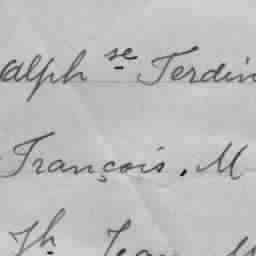 alph se Ferdin
François, M
Jh Jean M